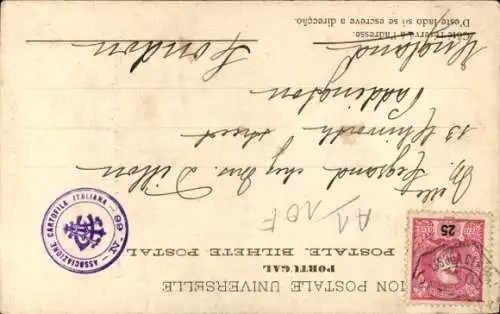 UNION POSTALE UNIVERSELLE
PORTUGAL
POSTALE. BILHETE POSTAL
25
A1
10F
Mlle Legrand chez Mrs. Dillon
13 street
Paddington
London
England
Côté réservé à l'adresse.
D'este lado só se escreve a direcção.
ASSOCIAZIONE CARTOFILA ITALIANA